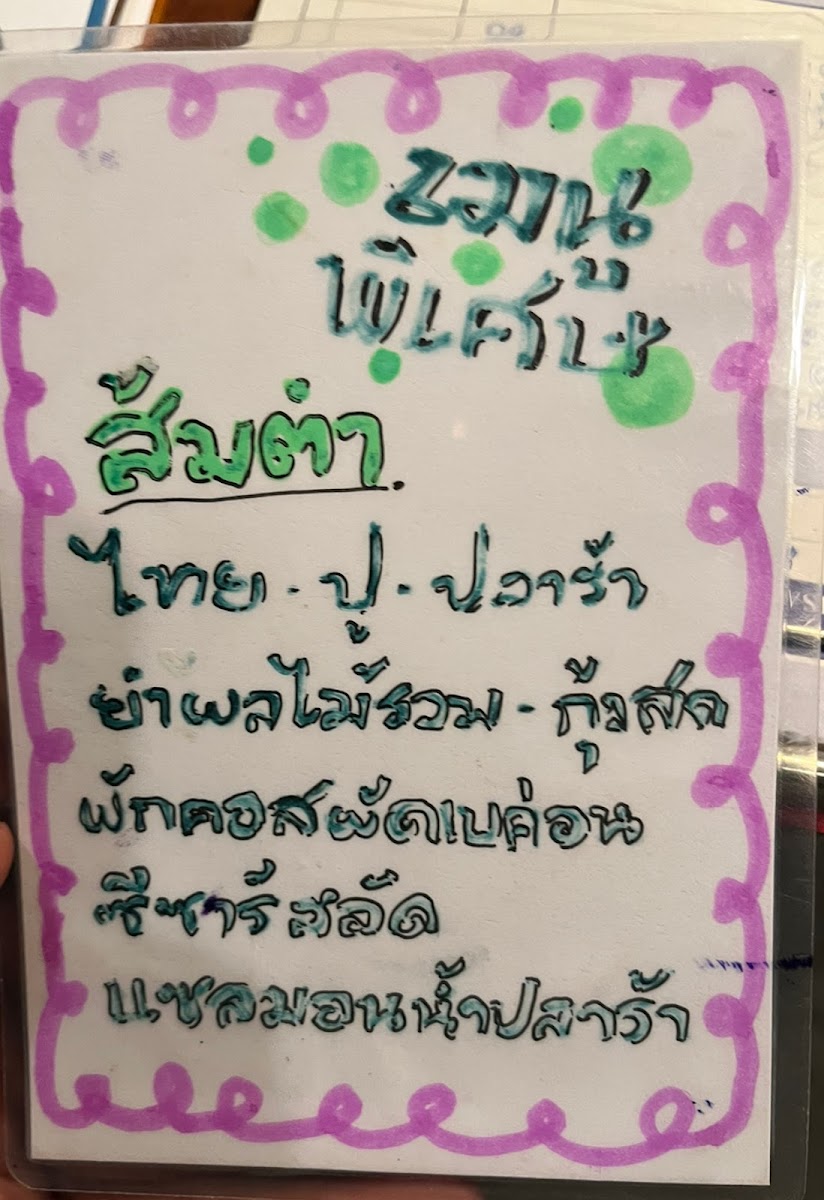 เมนู
พิเศษ
ส้มตำ.
ไทย - ปู - ปลาร้า
ยำผลไม้รวม - กุ้งสด
ผักคอสผัดเบค่อน
ซีซาร์สลัด
แซลมอนน้ำปลาร้า